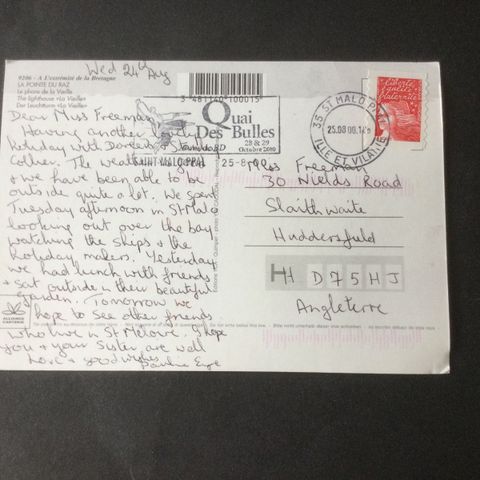 9206 - A L'extrémité de la Bretagne
LA POINTE DU RAZ
Le phare de la Vieille
The lighthouse «La Vieille»
Der Leuchtturm «La Vieille»
Wed 24th Aug
Dear Miss Freeman
Having another lovely
holiday with Doreen &
Collier. The weather
& we have been able to be
outside quite a lot. We spent
Tuesday afternoon in St Malo
looking out over the bay
watching the ships & the
holiday makers. Yesterday
we had lunch with friends
& sat outside in their beautiful
garden. Tomorrow we
hope to see other friends
who live in St Meloir. I hope
you & your sister are well
Love & good wishes
Pauline
3 481140 100015
Quai
Des Bulles
28 & 29
Octobre 2000
SAINT MALO PPAL 25-8-00
35 ST MALO PPAL
25.08.00
ILLE ET VILAINE
Liberté
égalité
fraternité
Miss Freeman
30 Nields Road
Slaithwaite
Huddersfield
HD75HJ
Angleterre
ALLIANCE
CARTERIE